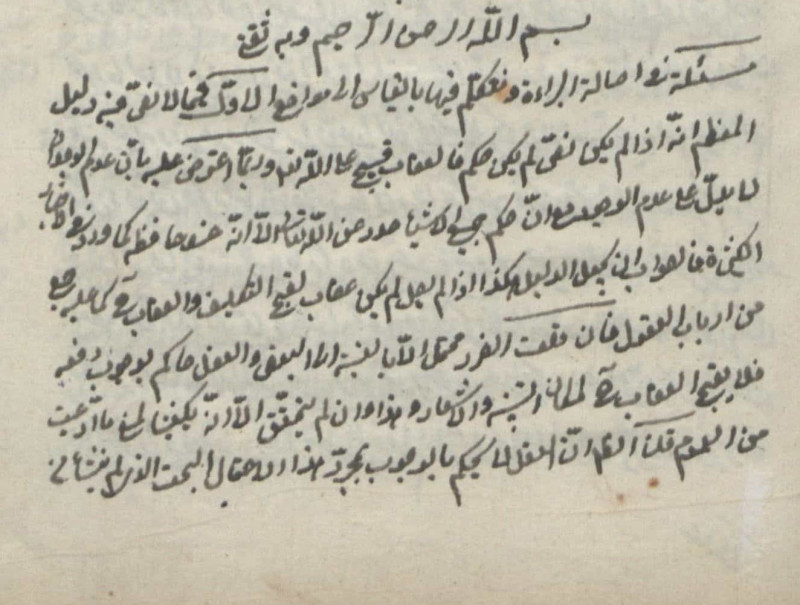 بسم الله الرحمن الرحيم وبه ثقتي
مسئلة في اصالة البراءة ونتكلم فيها بالقياس الى مواضع الاول فيما لا نص فيه دليل
المعظم انه اذا لم يكن نص لم يكن حكم فالعقاب قبيح على الله تع وربما اعترض عليه بان عدم الوجدان
لا يدل على عدم الوجود مع ان حكم جميع الاشياء صدر من الله تعالى الا انه عند حافظه كما ورد في الاخبار
الكثيرة فالصواب ان يجعل الدليل هكذا اذا لم يصل لم يكن عقاب لقبح التكليف والعقاب ح كما عليه جمع
من ارباب العقول فان قلت الضرر محتمل الا بالنسبة الى البعض والعقل حاكم بوجوب دفعه
فلا يقبح العقاب ح لمكان التنبيه والاشعار وهذا وان لم يتحقق الا انه يكفينا لمنع ما ادعيت
من العموم قلت الظ ان العقل لا يحكم بالوجوب بمجرد هذا الاحتمال البحت الذي لم ينشأ من